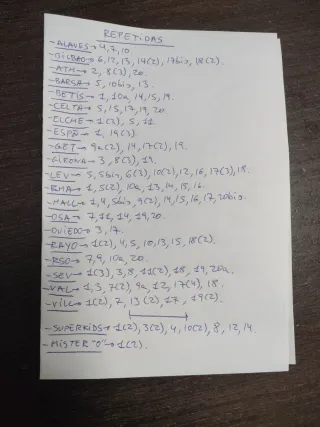 REPETIDAS
-ALAVES→ 4,7,10
-BILBAO→ 6,12,13,14(2),17bis,18(2).
-ATM→ 2,8(3),20.
-BARSA→ 5,10bis,13.
-BETIS→ 1,10a,14,15,19.
-CELTA→ 5,15,17,19,20
-ELCHE→ 1(3),5,11.
-ESPÑ→ 1,19(3).
-GET→ 9a(2),14,17(2),19.
-GIRONA→ 3,8(3),19.
-LEV→ 5,5bis,6(3),10(2),12,16,17(3),18.
-RMA→ 1,5(2),10a,13,14,15,16.
-MALL→ 1,4,5bis,9(2),14,15,16,17,20bis.
-OSA→ 7,11,14,19,20.
-OVIEDO→ 3,17.
-RAYO→ 1(2),4,5,10,13,15,18(2).
-RSO→ 7,9,10a,20.
-SEV→ 1(3),3,8,11(2),18,19,20a.
-VAL→ 1,3,7(2),9a,12,17(4),18.
-VILL→ 1(2),7,13(2),17,19(2).
-SUPERKIDS→ 1(2),3(2),4,10(2),8,12,14.
-MISTER "O"→ 1(2).